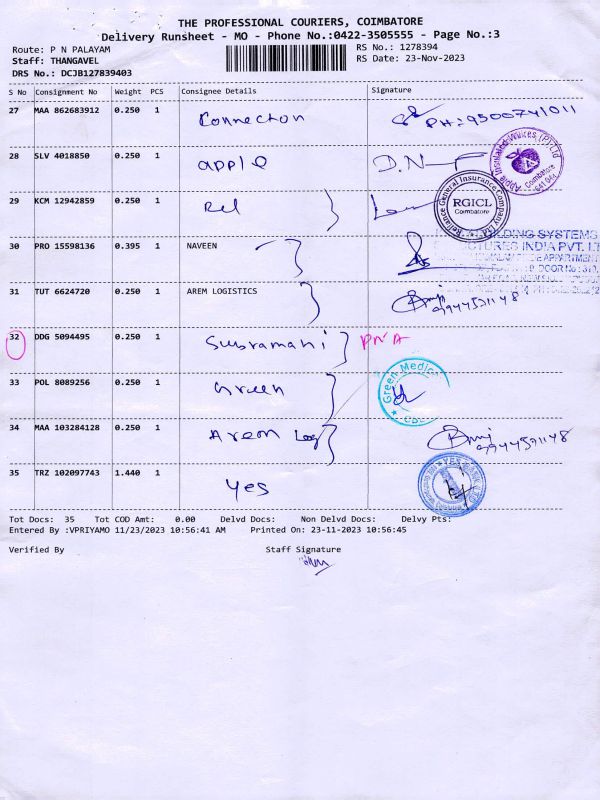 THE PROFESSIONAL COURIERS, COIMBATORE
Delivery Runsheet - MO - Phone No.:0422-3505555 - Page No.:3
Route: P N PALAYAM
Staff: THANGAVEL
DRS No.: DCJB127839403
RS No.: 1278394
RS Date: 23-Nov-2023
S No Consignment No Weight PCS Consignee Details Signature
27 MAA 862683912 0.250 1 Connection PH:9500741011
28 SLV 4018850 0.250 1 apple D.N
Apple Insulated Wires (P) Ltd
Coimbatore
29 KCM 12942859 0.250 1 Rel
Reliance General Insurance Company Ltd
RGICL
Coimbatore
30 PRO 15598136 0.395 1 NAVEEN
BUILDING SYSTEMS
INDIA PVT. LT
APPARTMENT
DOOR No: 310,
31 TUT 6624720 0.250 1 AREM LOGISTICS 9944521148
32 DDG 5094495 0.250 1 Subramani PNA
33 POL 8089256 0.250 1 Green
Green Medic
34 MAA 103284128 0.250 1 Arem Log 9944521148
35 TRZ 102097743 1.440 1 Yes
YES BANK
Tot Docs: 35 Tot COD Amt: 0.00 Delvd Docs: Non Delvd Docs: Delvy Pts:
Entered By :VPRIYAMO 11/23/2023 10:56:41 AM Printed On: 23-11-2023 10:56:45
Verified By Staff Signature